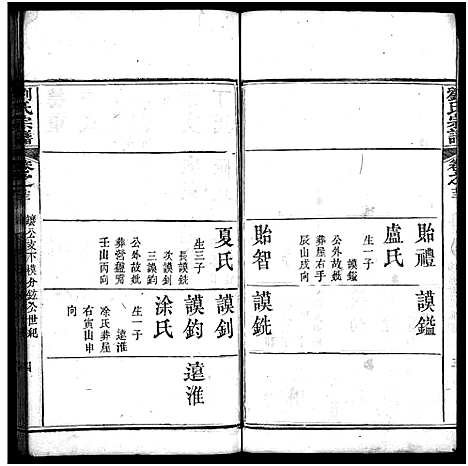 劉氏宗譜
卷之三
貽禮
盧氏
生一子
謨鎰
公外故㐲
葬屋右手
辰山戌向
貽智
謨鎰
謨銑
夏氏
生三子
長謨銑
次謨釗
三謨鈞
公外故㐲
葬營盤㔉
壬山丙向
謨釗
謨鈞
涂氏
生一子
遠淮
凃氏葬屋
右寅山申
向
遠淮
劉氏宗譜
卷之三
鑣公支下模分鉉公世紀
四